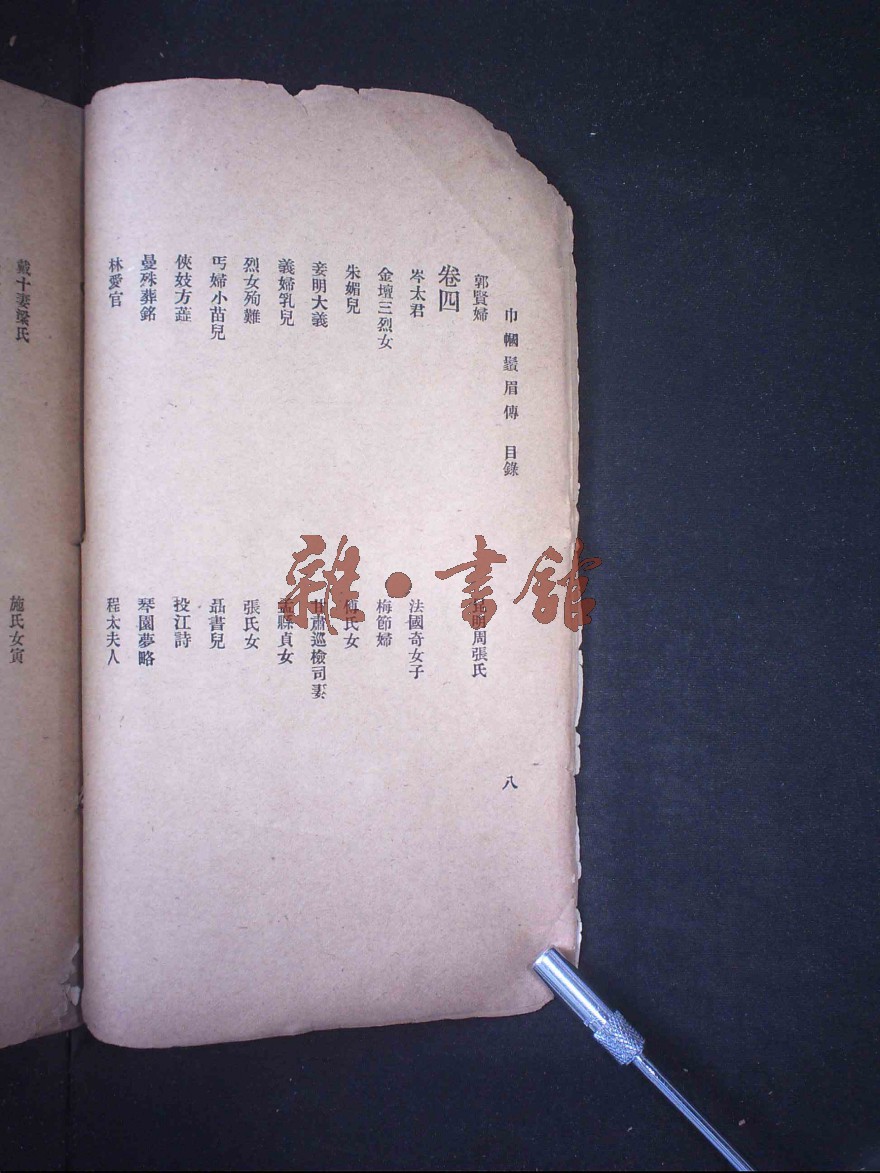 巾幗鬚眉傳 目錄 八
郭賢婦 昆明周張氏
卷四
岑太君 法國奇女子
金壇三烈女 梅節婦
朱媚兒 傅氏女
妾明大義 甘肅巡檢司妻
義婦乳兒 孟縣貞女
烈女殉難 張氏女
丐婦小苗兒 聶書兒
俠妓方蓮 投江詩
曼殊葬銘 琴園夢略
林愛官 程太夫人
戴十妻梁氏 施氏女寅
雜·書館